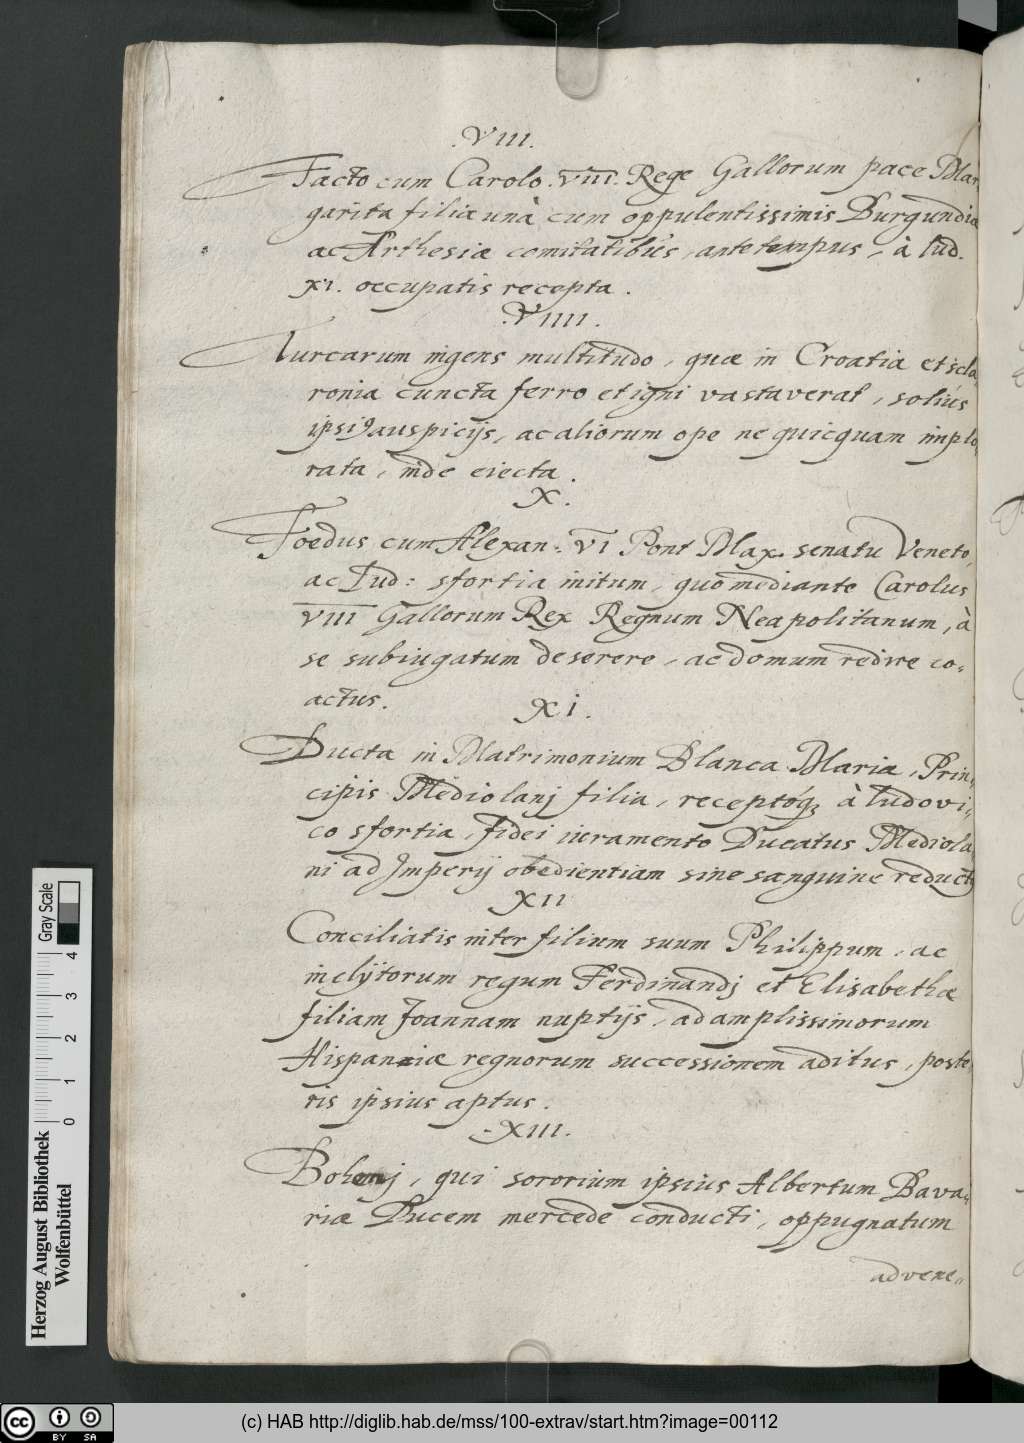 .VIII.
Facto cum Carolo .VIII. Rege Gallorum pace Mar-
garita filia unà cum oppulentissimis Burgundiæ
ac Arthesiæ comitatibus, ante tempus, à Lud.
XI. occupatis recepta.
.VIIII.
Turcarum ingens multitudo, quæ in Croatia et Scla-
vonia cuncta ferro et igni vastaverat, solius
ipsi9 auspicijs, ac aliorum ope ne quicquam implo-
rata, inde eiecta.
X.
Foedus cum Alexan: VI Pont Max. senatu Veneto,
ac Lud: sfortia initum, quo mediante Carolus
VIII Gallorum Rex Regnum Neapolitanum, à
se subiugatum deserere, ac domum redire co-
actus.
XI.
Ducta in Matrimonium Blanca Maria, Prin-
cipis Mediolanj filia, receptóq; à Ludovi-
co sfortia, fidei iuramento Ducatus Mediola-
ni ad Imperij obedientiam sine sanguine reduct9
XII
Conciliatis inter filium suum Philippum, ac
inclÿtorum regum Ferdinandj et Elisabethæ
filiam Joannam nuptijs, ad amplissimorum
Hispaniæ regnorum successionem aditus, poste-
ris ipsius aptus.
.XIII.
Bohemj, qui sororium ipsius Albertum Bava-
riæ Ducem mercede conducti, oppugnatum
advene-
Herzog August Bibliothek
Wolfenbüttel
0 1 2 3 4
Gray Scale
cc BY SA
(c) HAB http://diglib.hab.de/mss/100-extrav/start.htm?image=00112